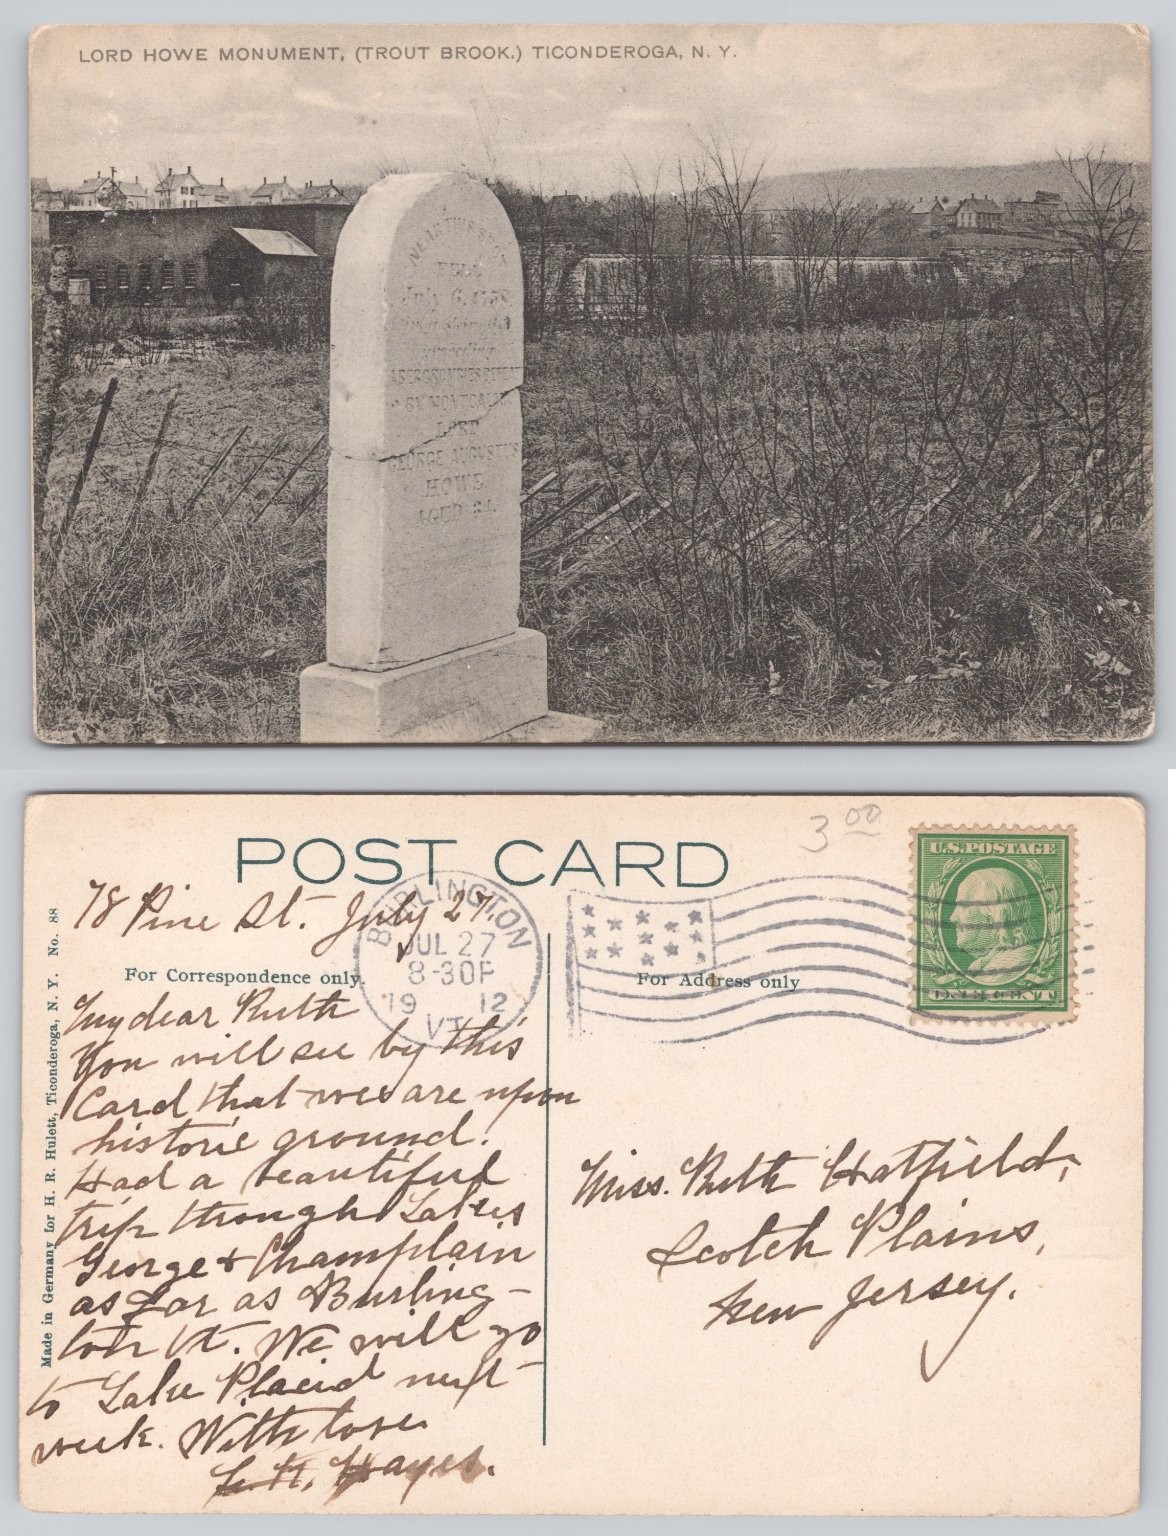 LORD HOWE MONUMENT, (TROUT BROOK.) TICONDEROGA, N. Y.
NEAR THIS
FELL
July 6, 1758
preceding
BY MONTCALM
LORD
GEORGE AUGUSTUS
HOWE
AGED 34.
3 00
POST CARD
U.S. POSTAGE
ONE CENT
BURLINGTON
JUL 27
8-30P
19 12
VT.
78 Pine St. July 27.
For Correspondence only.
For Address only
My dear Ruth
You will see by this
Card that we are upon
historic ground.
Had a beautiful
trip through Lakes
George & Champlain
as far as Burling-
ton Vt. We will go
to Lake Placid next
week. With love
Hayes.
Miss. Ruth Hatfield,
Scotch Plains,
New Jersey.
Made in Germany for H. R. Hulett, Ticonderoga, N. Y. No. 88